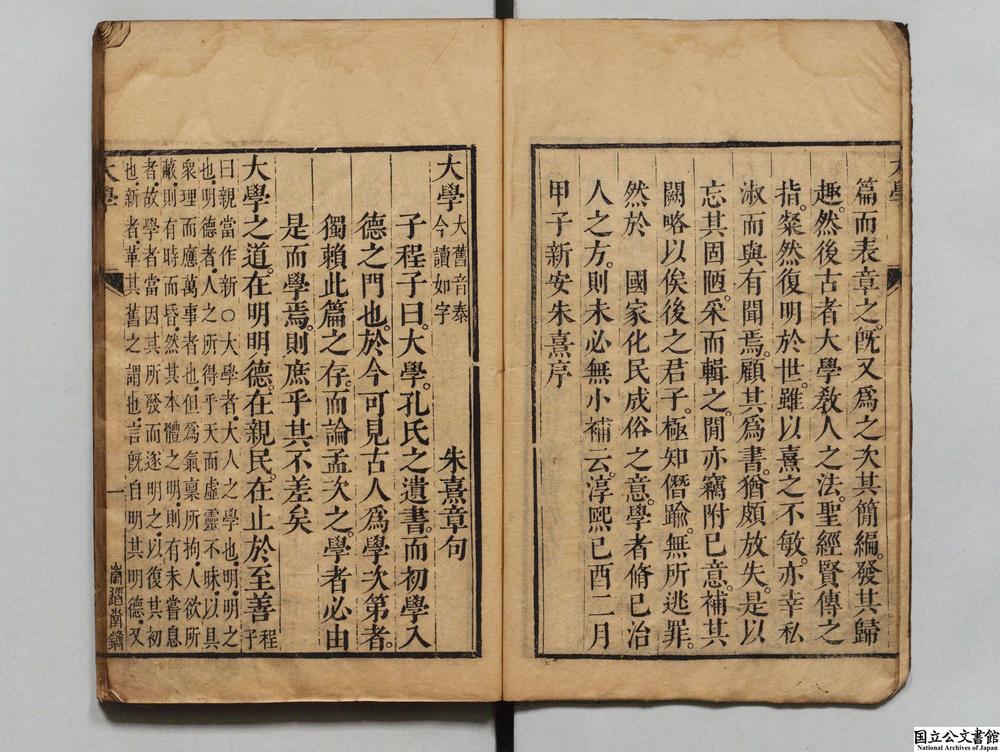 大學
篇而表章之。旣又爲之次其簡編。發其歸
趣。然後古者大學敎人之法。聖經賢傳之
指。粲然復明於世。雖以熹之不敏。亦幸私
淑而與有聞焉。顧其爲書。猶頗放失。是以
忘其固陋。采而輯之。閒亦竊附已意。補其
闕略以俟後之君子。極知僭踰。無所逃罪。
然於　國家化民成俗之意。學者脩已治
人之方。則未必無小補云。淳熙已酉二月
甲子新安朱熹序
大學 大舊音泰
今讀如字
朱熹章句
子程子曰。大學。孔氏之遺書。而初學入
德之門也。於今可見古人爲學次第者。
獨賴此篇之存。而論孟次之。學者必由
是而學焉。則庶乎其不差矣
大學之道。在明明德。在親民。在止於至善 程
子
曰親當作新○大學者。大人之學也。明。明之
也。明德者。人之所得乎天而虛靈不昧。以具
衆理而應萬事者也。但爲氣稟所拘。人欲所
蔽。則有時而昏。然其本體之明。則有未嘗息
者。故學者當因其所發而遂明之。以復其初
也。新者。革其舊之謂也。言旣自明其明德。又
大學
一
國立公文書館
National Archives of Japan